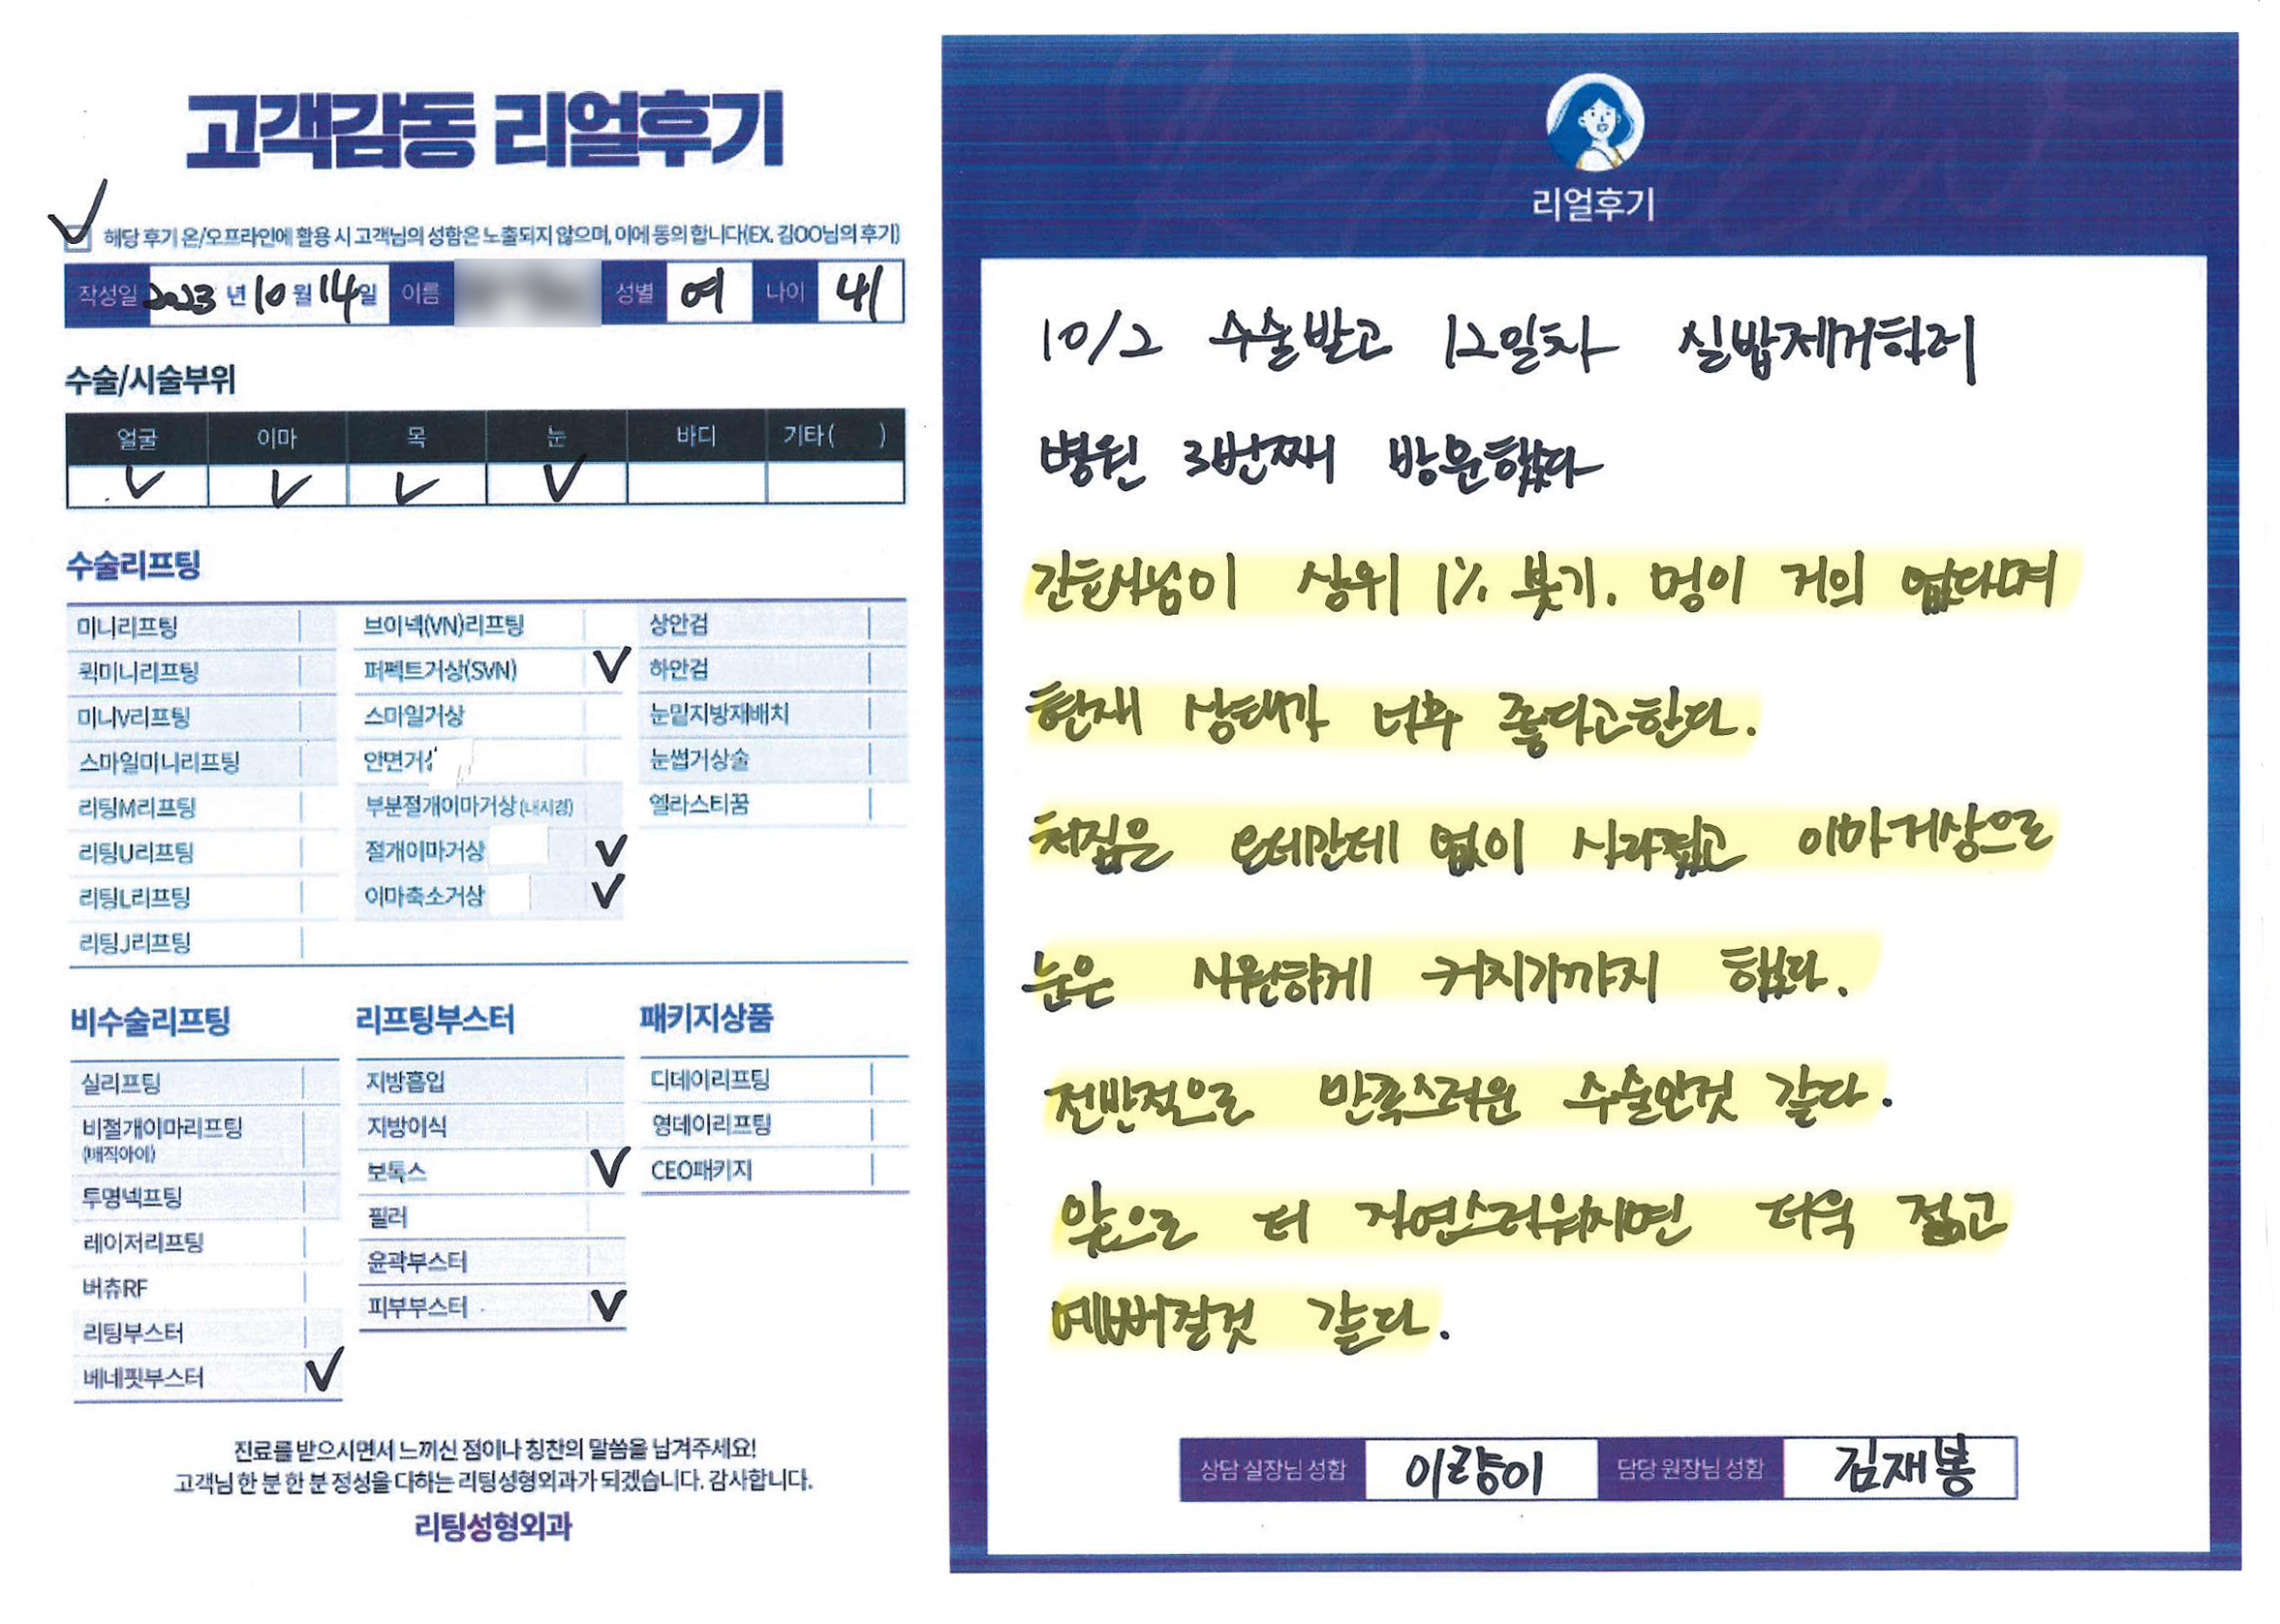 고객감동 리얼후기
해당 후기 온/오프라인에 활용 시 고객님의 성함은 노출되지 않으며, 이에 동의 합니다(EX. 김OO님의 후기)
작성일 2023 년 10 월 14 일 이름 성별 여 나이 41
수술/시술부위
얼굴 이마 목 눈 바디 기타( )
수술리프팅
미니리프팅 브이넥(VN)리프팅 상안검
퀵미니리프팅 퍼펙트거상(SVN) 하안검
미니V리프팅 스마일거상 눈밑지방재배치
스마일미니리프팅 안면거상 눈썹거상술
리팅M리프팅 부분절개이마거상(내시경) 엘라스티꿈
리팅U리프팅 절개이마거상
리팅L리프팅 이마축소거상
리팅J리프팅
비수술리프팅 리프팅부스터 패키지상품
실리프팅 지방흡입 디데이리프팅
비절개이마리프팅 지방이식 영데이리프팅
(매직아이)
보톡스 CEO패키지
투명넥프팅 필러
레이저리프팅 윤곽부스터
버츄RF 피부부스터
리팅부스터
베네핏부스터
진료를 받으시면서 느끼신 점이나 칭찬의 말씀을 남겨주세요!
고객님 한 분 한 분 정성을 다하는 리팅성형외과가 되겠습니다. 감사합니다.
리팅성형외과
리얼후기
10/2 수술받고 12일차 실밥제거하러
병원 3번째 방문했다
간호사님이 상위 1% 붓기. 멍이 거의 없다며
현재 상태가 너무 좋다고한다.
처짐은 온데간데 없이 사라졌고 이마거상으로
눈은 시원하게 커지기까지 했다.
전반적으로 만족스러운 수술인것 같다.
앞으로 더 자연스러워지면 더욱 젊고
예뻐질것 같다.
상담 실장님 성함 이량이 담당 원장님 성함 김재봉